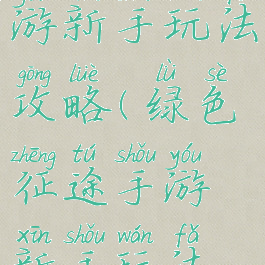 游新手玩法
gōng lüè lǜ sè
攻略(绿色
zhēng tú shǒu yóu
征途手游
xīn shǒu wán fǎ
新手玩法